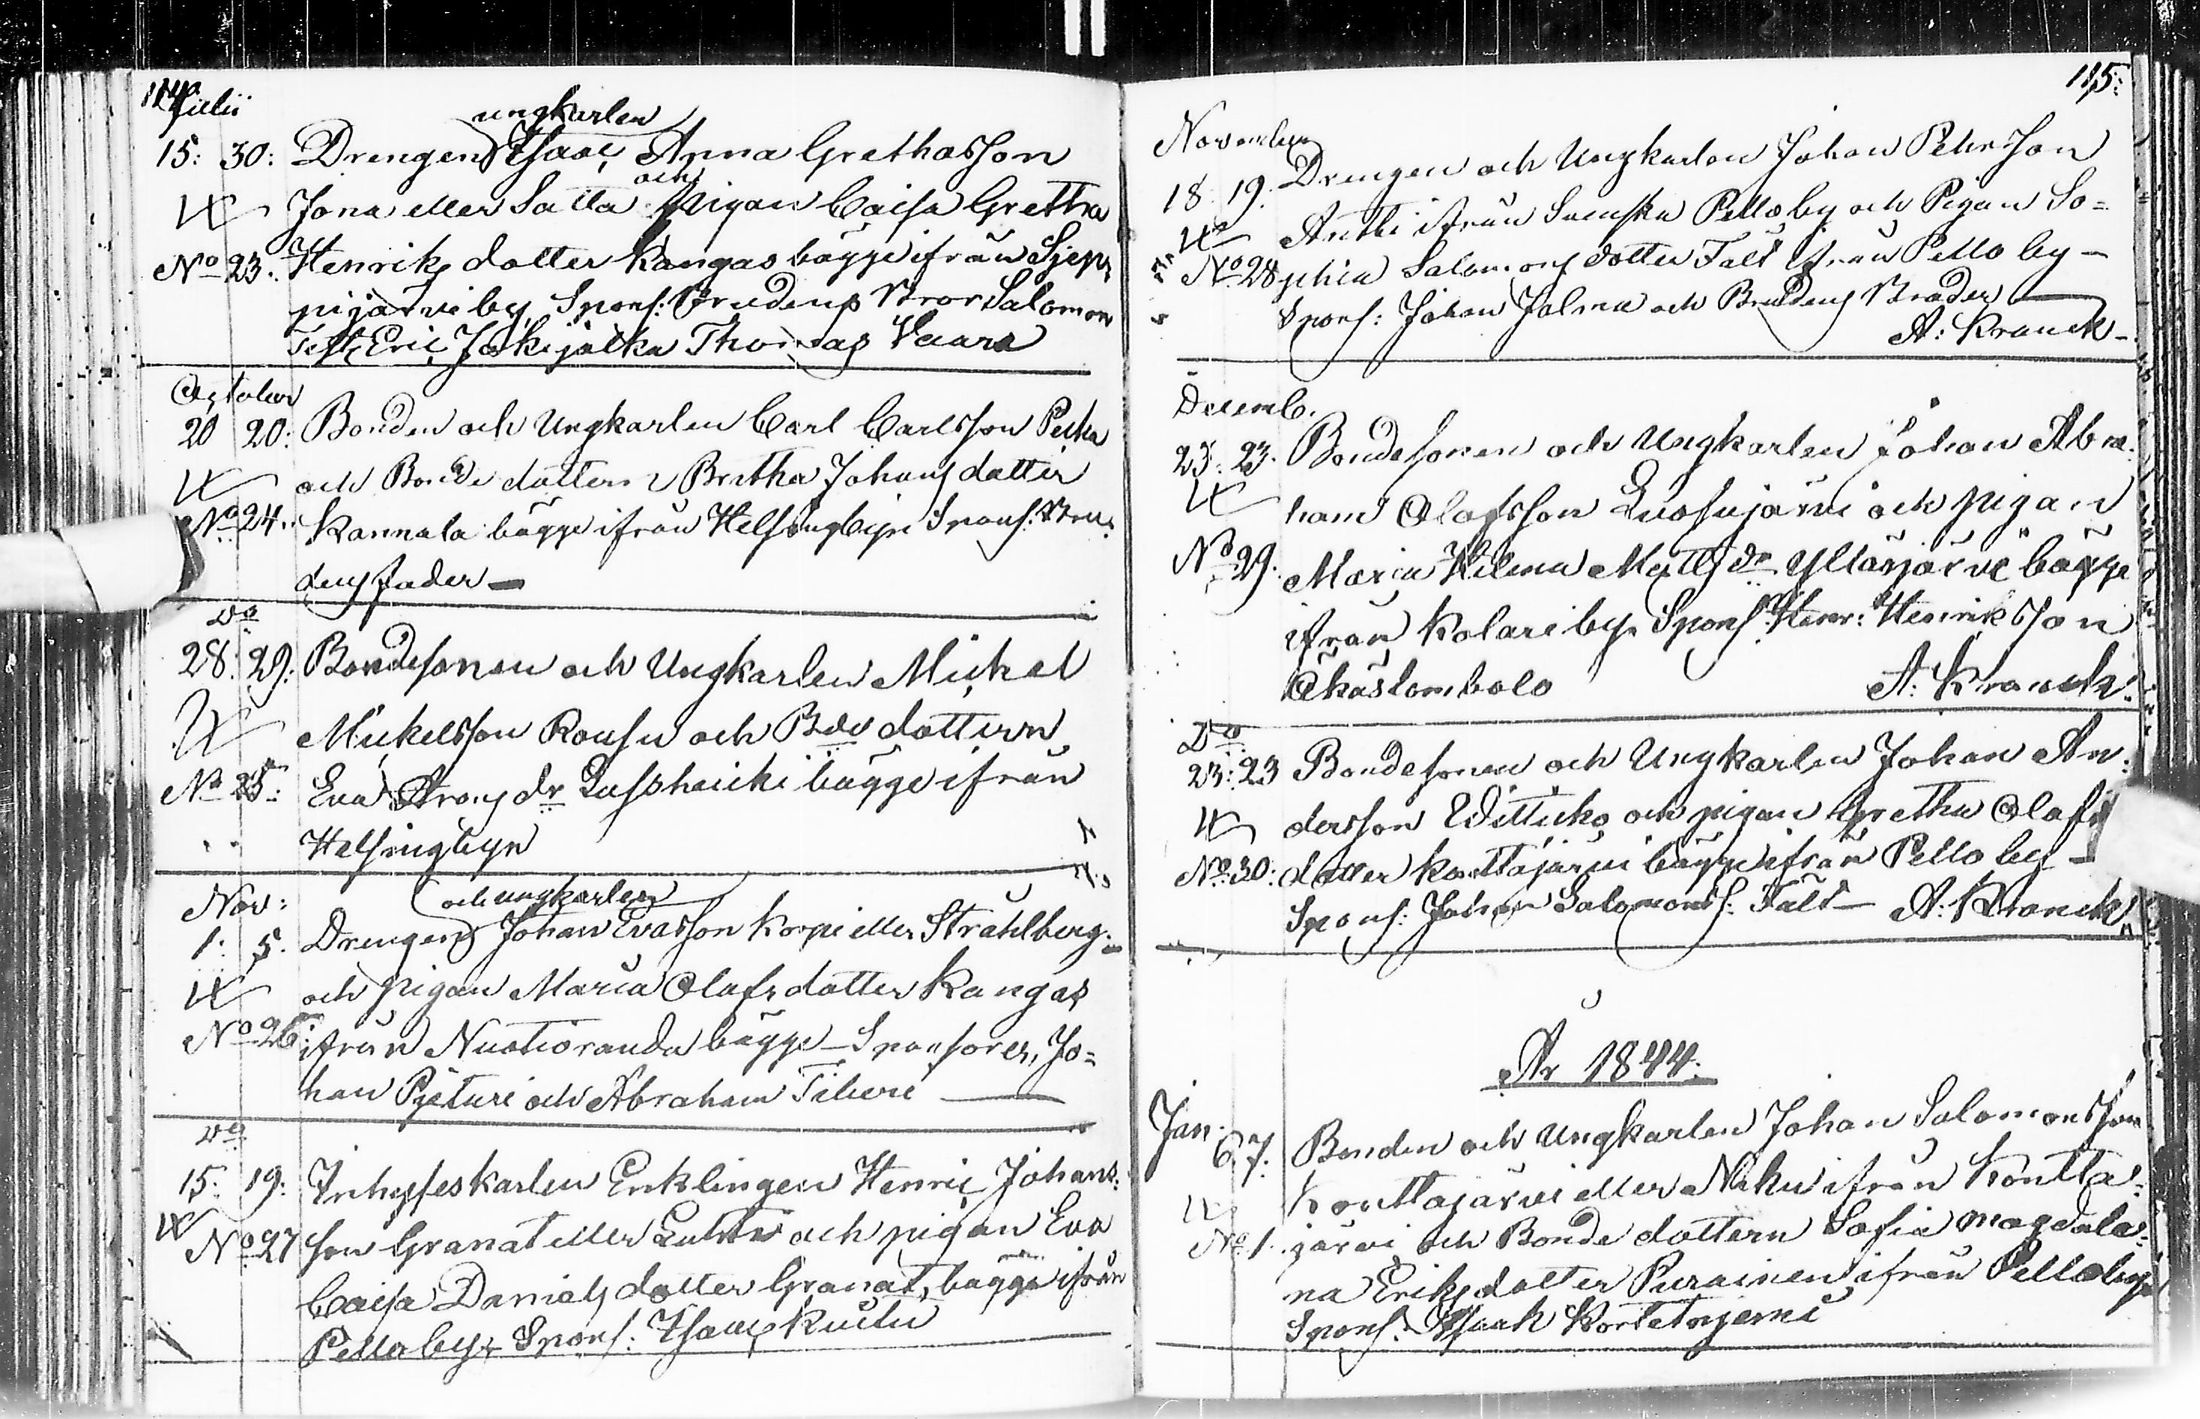 114
Julii
ungkarlen
15: 30: Drengen Isaac Anna Grethasson
Jona eller Satta och Pigan Caisa Gretha
No 23: Henriks dotter Kangas bägge ifrån Sjep-
pijärvi by, Spons: Brudens Bror Salomon
Test: Eric Jokijalka Thomas Vaara
October
20 20: Bonden och Ungkarlen Carl Carlsson Pekka
och Bonde dottern Bretha Johans dotter
No 24: Kannala bägge ifrån Helsingbyn Spons: Bru-
dens fader
Do
28: 29: Bondesonen och Ungkarlen Mickel
Mickelsson Rousu och Bde dottern
No 25: Eva Arons dr bägge ifrån
Helsingbyn
Nov:
och ungkarlen
1: 5. Drengen Johan Evasson Korpi eller Stråhlberg
och pigan Maria Olafs dotter Kangas
No 26: ifrån Nuotioranda bägge Sponsorer, Jo=
han Pjeturi och Abraham Tiberi
Do
15: 19: Inhyseskarlen Enklingen Henric Johans-
No 27 son Granat eller Luhta och pigan Eva
Caisa Daniels dotter Granat, bägge ifrån
Pello by, Spons: Isaac Kuitu
115:
November
18 19. Drengen och Ungkarlen Johan Petersson
Antti ifrån Svenska Pello by och Pigan So=
No 28 phia Salomons dotter Fält ifrån Pello by
Spons: Johan Jolma och Brudens Broder
A: Kranck
Decemb.
23: 23. Bondesonen och Ungkarlen Johan Abra-
ham Olofsson Luosujärvi och pigan
No 29: Maria Helena Matts dr Ylläsjärvi bägge
ifrån Kolari by Spons: Henr: Henriksson
Äkäslombolo A: Kranck
Do
23: 23 Bondesonen och Ungkarlen Johan An-
dersson Wittikko och pigan Gretha Olofs
No 30: dotter Konttajärvi bägge ifrån Pello by
Spons: Johan Salomonss: Fält A: Kranck
År 1844.
Jan.
6 7. Bonden och Ungkarlen Johan Salomonsson
Konttajärvi eller Niku ifrån Kontta-
No 1. järvi och Bonde dottern Sofia Magdale-
na Eriks dotter Purainen ifrån Pelloby
Spons: Isaak Kortetnjemi